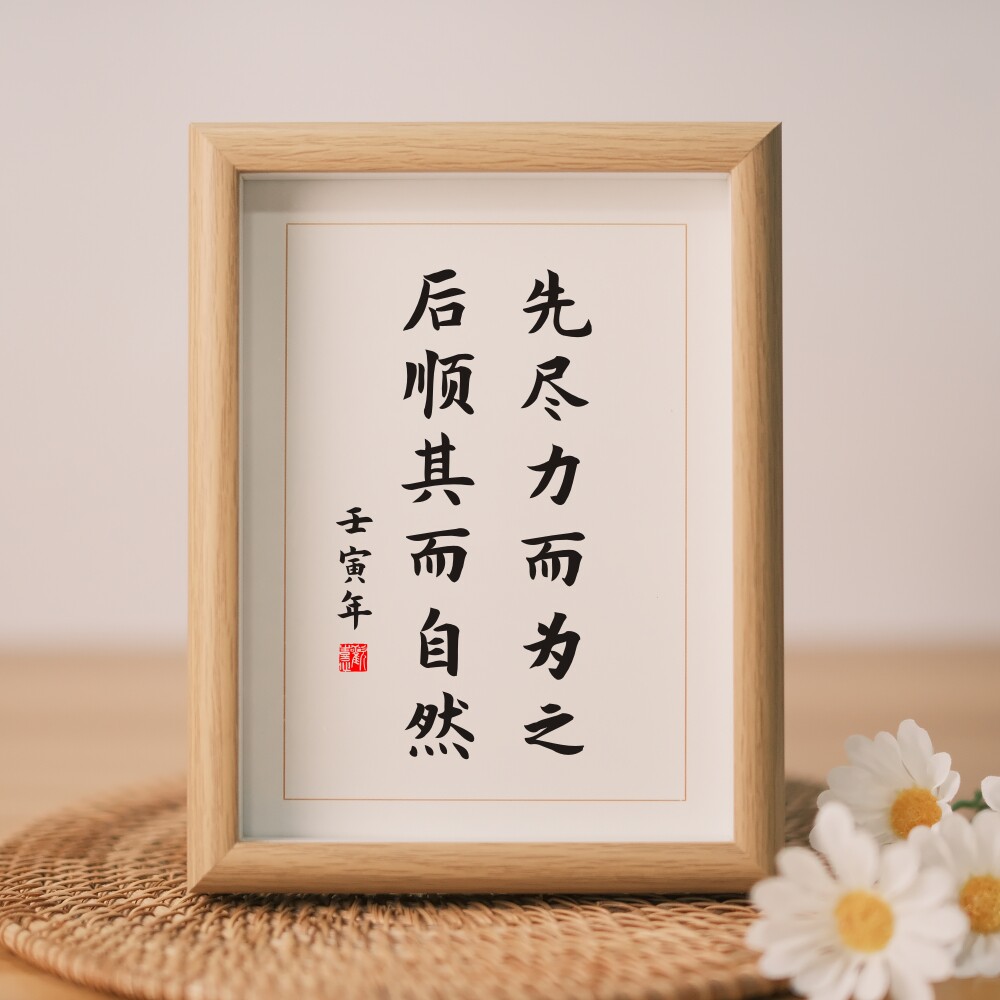 先尽力而为之
后顺其而自然
壬寅年